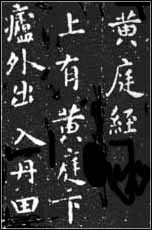 黄庭經
上有黄庭下
廬外出入丹田